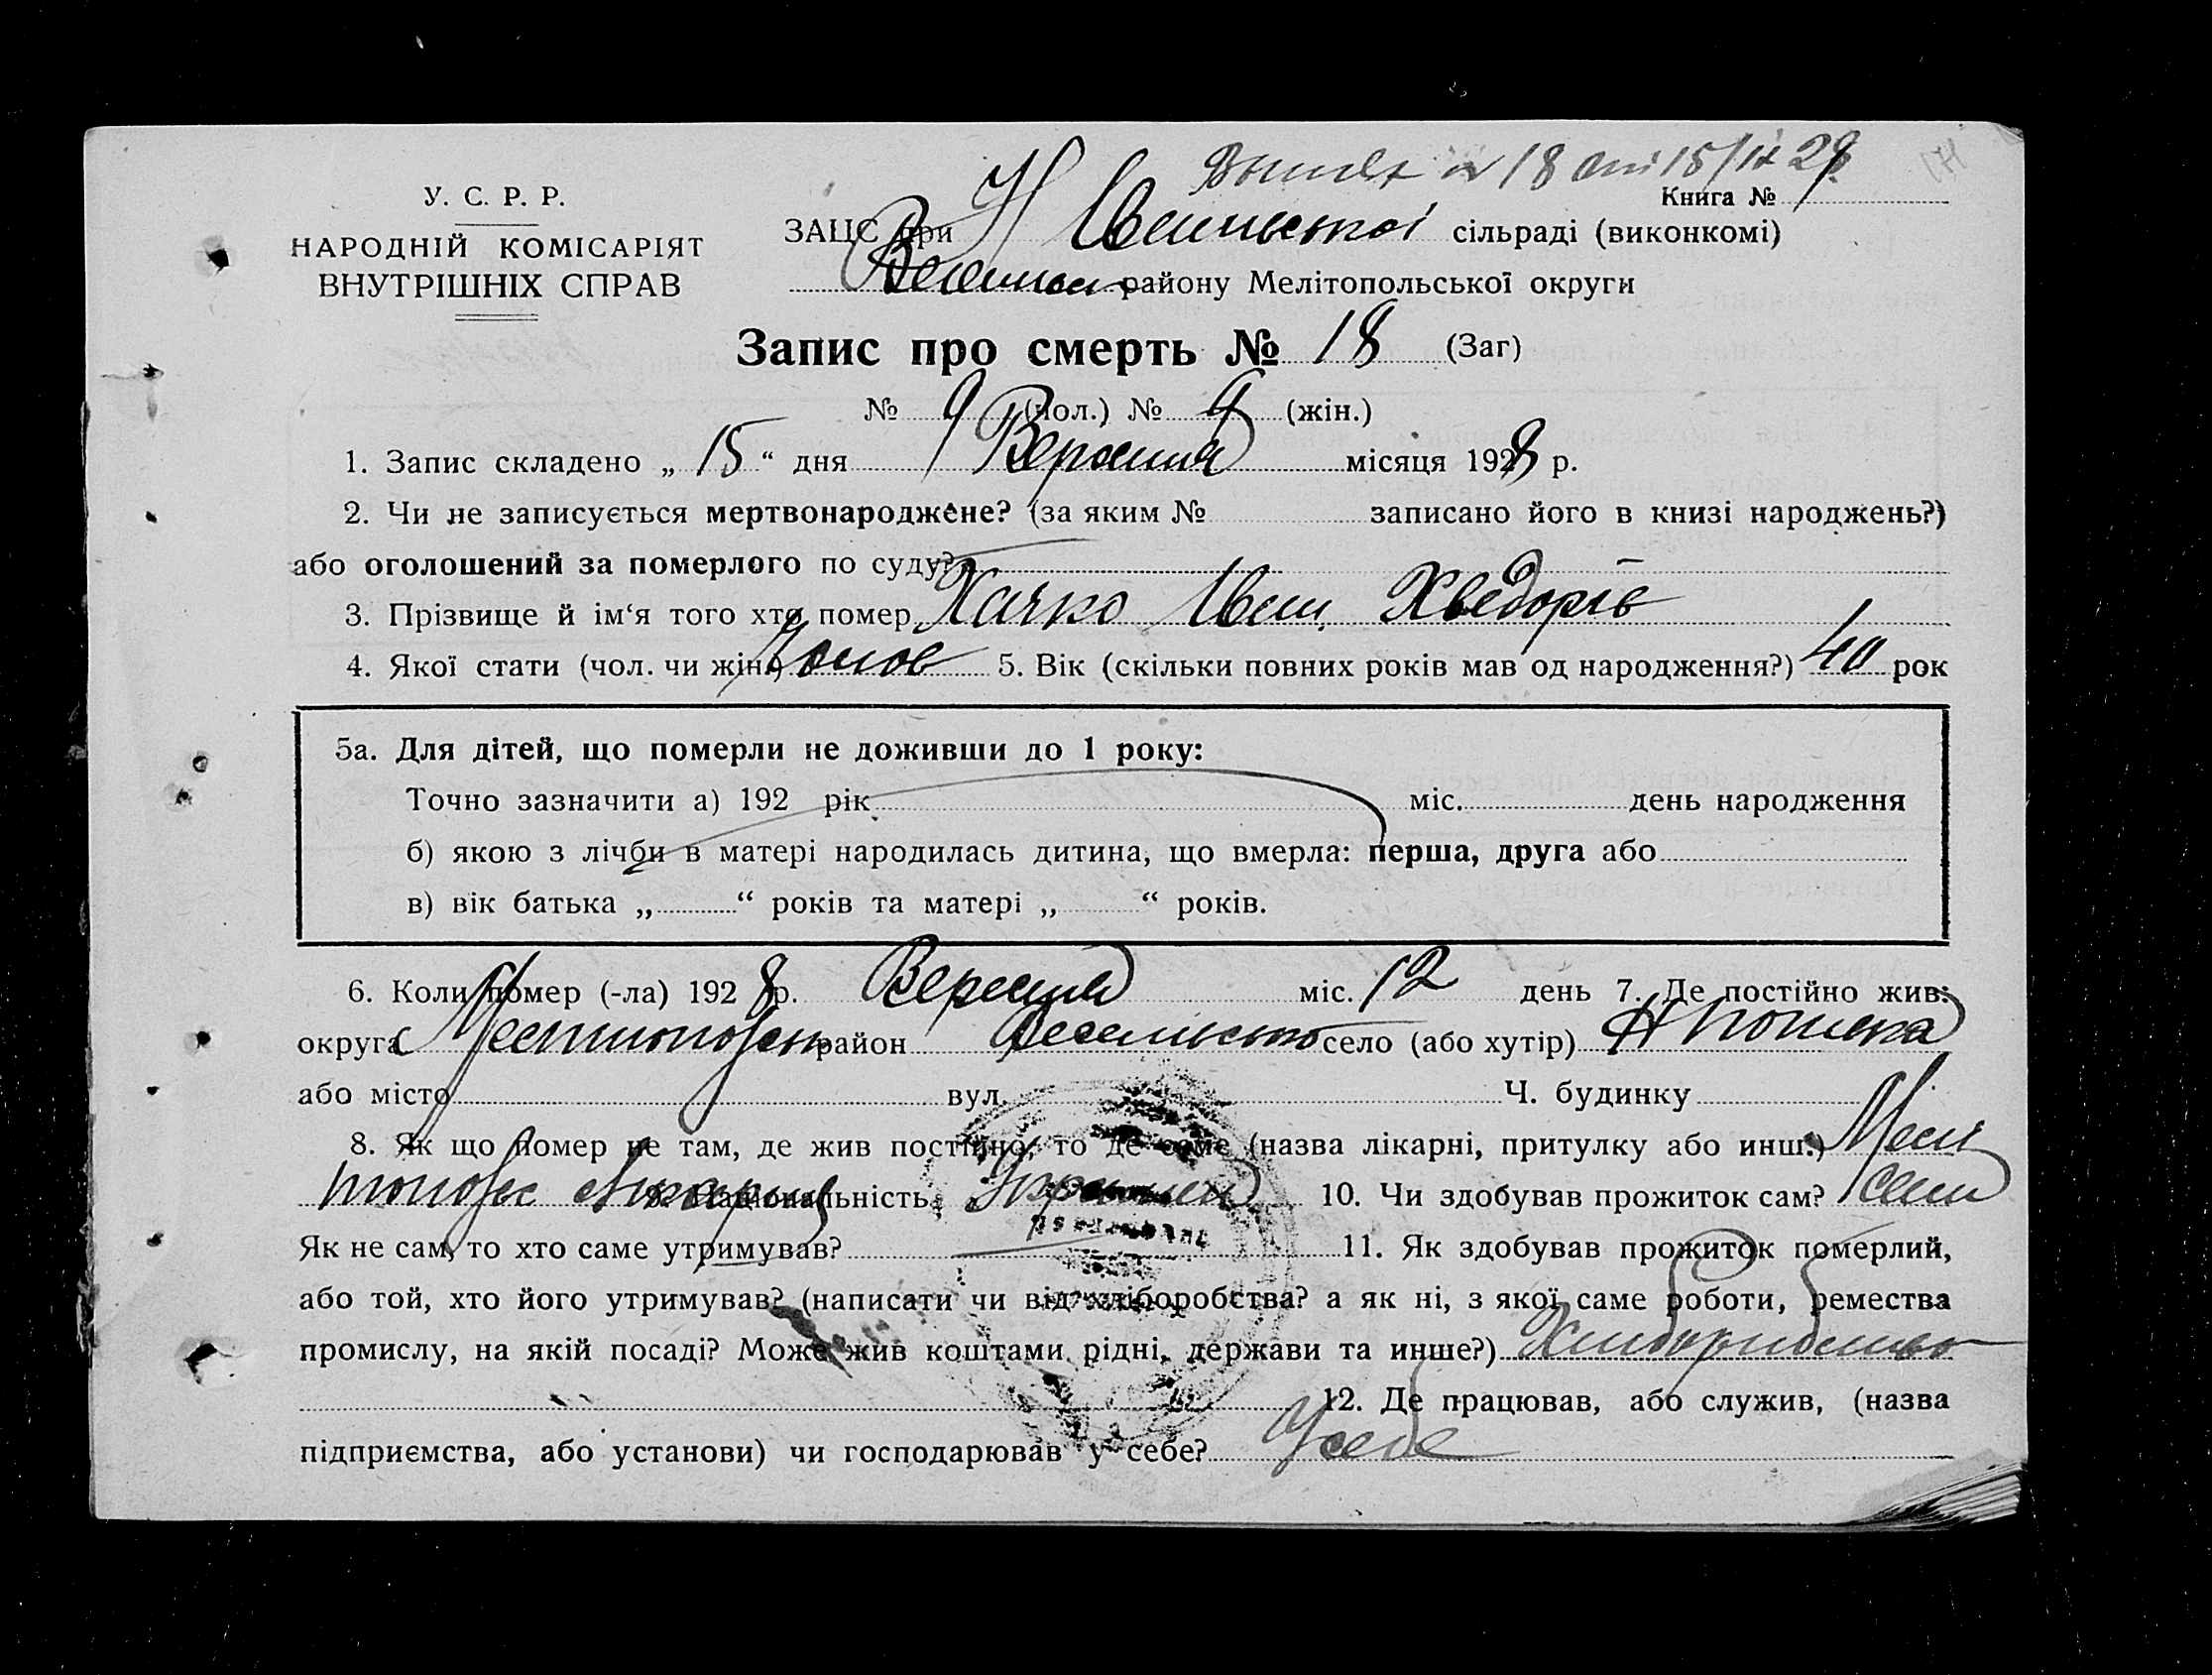 18 15/IX 28
У. С. Р. Р.
Книга №
НАРОДНІЙ КОМІСАРІЯТ
ВНУТРІШНІХ СПРАВ
ЗАЦС при Н сільраді (виконкомі)
району Мелітопольської округи
Запис про смерть № 18 (Заг)
№ 9 (чол.) № 9 (жін.)
1. Запис складено „ 15 “ дня Вересня місяця 1928 р.
2. Чи не записується мертвонароджене? (за яким № записано його в книзі народжень?)
або оголошений за померлого по суду?
3. Прізвище й ім‘я того хто помер Іван Хведорів
4. Якої стати (чол. чи жін.) Чолов 5. Вік (скільки повних років мав од народження?) 40 рок
5а. Для дітей, що померли не доживши до 1 року:
Точно зазначити а) 192 рік міс. день народження
б) якою з лічби в матері народилась дитина, що вмерла: перша, друга або
в) вік батька „ “ років та матері „ “ років.
6. Коли помер (-ла) 192 8 р. Вересня міс. 12 день 7. Де постійно жив:
округа район село (або хутір)
або місто вул. Ч. будинку
8. Як що помер не там, де жив постійно, то де саме (назва лікарні, притулку або инш.) Мелі
9. Національність 10. Чи здобував прожиток сам? сам
Як не сам, то хто саме утримував? 11. Як здобував прожиток померлий,
або той, хто його утримував? (написати чи від хліборобства? а як ні, з якої саме роботи, ремества
промислу, на якій посаді? Може жив коштами рідні, держави та инше?) Хліборобство
12. Де працював, або служив, (назва
підприємства, або установи) чи господарював у себе? У себе